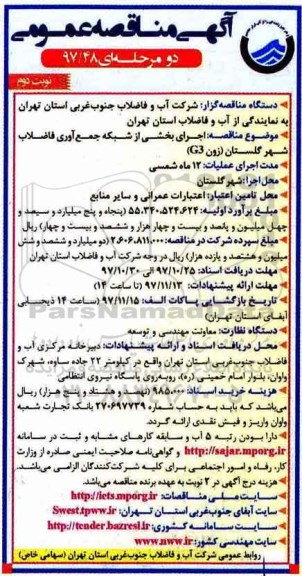 آگهی مناقصه عمومی
دو مرحله‌ای ۹۷/۴۸
نوبت دوم
دستگاه مناقصه‌گزار: شرکت آب و فاضلاب جنوب‌غربی استان تهران
به نمایندگی از آب و فاضلاب استان تهران
موضوع مناقصه: اجرای بخشی از شبکه جمع‌آوری فاضلاب
شهر گلستان (زون G3)
مدت اجرای عملیات: ۱۲ ماه شمسی
محل اجرا: شهر گلستان
محل تامین اعتبار: اعتبارات عمرانی و سایر منابع
مبلغ برآورد اولیه: ۵۵.۳۴۰.۵۲۴.۶۲۴ (پنجاه و پنج میلیارد و سیصد و
چهل میلیون و پانصد و بیست و چهار هزار و ششصد و بیست و چهار) ریال
مبلغ سپرده شرکت در مناقصه: ۲.۶۰۶.۸۱۱.۰۰۰ (دو میلیارد و ششصد و شش
میلیون و هشتصد و یازده هزار) ریال در وجه شرکت آب و فاضلاب استان تهران
مهلت دریافت اسناد: ۹۷/۱۰/۲۵ الی ۹۷/۱۰/۳۰
مهلت ارائه پیشنهادات: ۹۷/۱۱/۱۳ (تا ساعت ۱۴)
تاریخ بازگشایی پاکات الف: ۹۷/۱۱/۱۵ (ساعت ۱۴ ذیحسابی
آبفای استان تهران)
دستگاه نظارت: معاونت مهندسی و توسعه
محل دریافت اسناد و ارائه پیشنهادات: دبیرخانه مرکزی آب و
فاضلاب جنوب‌غربی استان تهران واقع در کیلومتر ۲۲ جاده ساوه، شهرک
واوان، بلوار امام خمینی (ره)، روبه‌روی پاسگاه نیروی انتظامی
هزینه خرید اسناد: ۹۸۵.۰۰۰ (نهصد و هشتاد و پنج هزار) ریال
می‌باشد که باید به حساب شماره ۲۷۰۶۹۷۷۳۹ بانک تجارت شعبه
واوان واریز و فیش نقدی ارائه گردد.
دارا بودن رتبه ۵ آب و سابقه کارهای مشابه و ثبت در سامانه
http://sajar.mporg.ir و گواهی‌نامه صلاحیت ایمنی صادره از وزارت
کار، رفاه و امور اجتماعی برای کلیه شرکت‌کنندگان الزامی می‌باشد.
هزینه درج آگهی در ۲ نوبت به عهده برنده مناقصه می‌باشد.
سایت ملی مناقصات: http://iets.mporg.ir
سایت آبفای جنوب‌غربی استان تهران: Swest.tpww.ir
سایت سامانه کشوری: http://tender.bazresi.ir
سایت مهندسی کشور: www.nww.ir
روابط عمومی شرکت آب و فاضلاب جنوب‌غربی استان تهران (سهامی خاص)